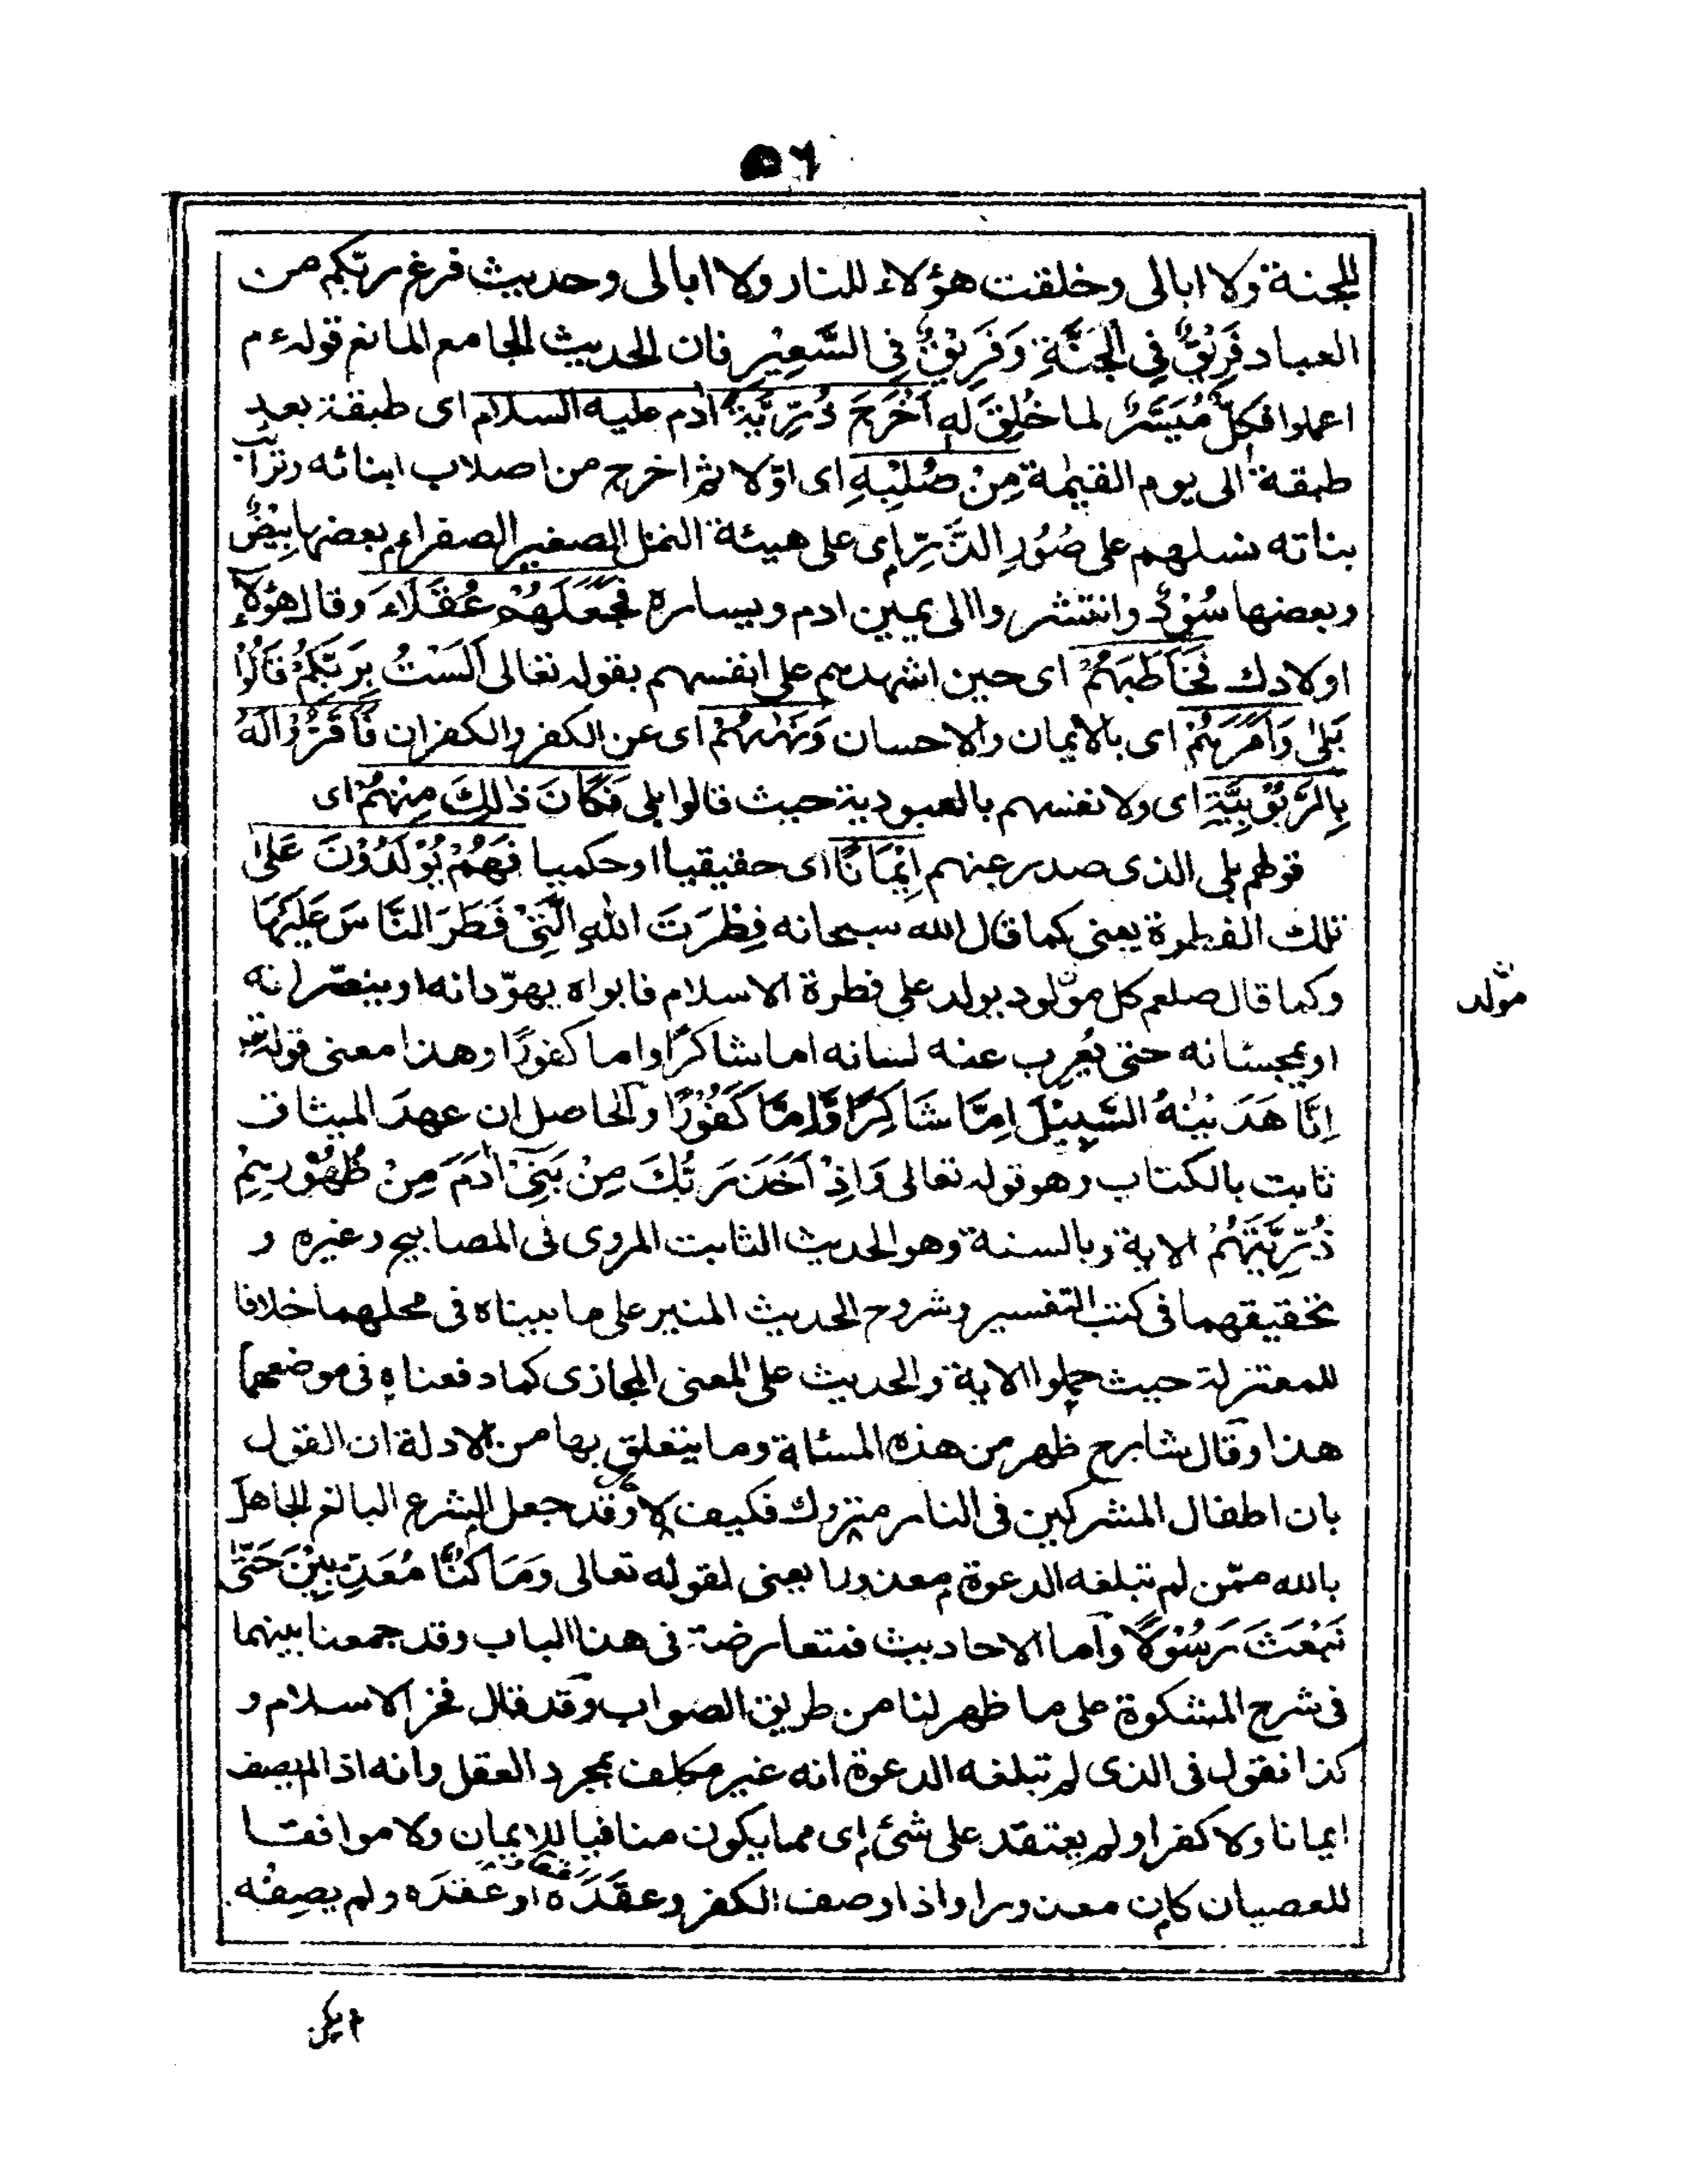 ٥٦
للجنة ولا ابالى وخلقت هؤلاء للنار ولا ابالى وحديث فرغ ربّكم من
العباد فَرِيْقٌ فِى الْجَنَّةِ وَفَرِيْقٌ فِى السَّعِيْرِ فان الحديث الجامع المانع قوله ءم
اعملوا فكلٌّ مُيَسَّرٌ لما خُلِقَ لَه اَخْرَجَ ذُرِّيَّةَ اٰدم عليه السلام اى طبقة بعد
طبقة الى يوم القيٰمة مِنْ صُلْبِهِ اى اوّلا ثم اخرج من اصلاب ابنائه وترائب
بناته نسلهم على صُوَرِ الذَّرِّ اى على هيئة النمل الصغير الصفراء بعضها بِيْضٌ
وبعضها سُوْدٌ وانتشروا الى يمين ادم ويساره فَجَعَلَهُمْ عُقَلَاءَ وقال هؤلاء
اولادك فَخَاطَبَهُمْ اى حين اشهدهم على انفسهم بقوله تعالى اَلَسْتُ بِرَبِّكُمْ قَالُوْا
بَلٰى وَاَمَرَهُمْ اى بالايمان والاحسان وَنَهٰهُمْ اى عن الكفر والكفران فَاَقَرُّوْا لَهُ
بِالرَّبُوْبِيَّةِ اى ولانفسهم بالعبودية حيث قالوا بلى فَكَانَ ذٰلِكَ مِنْهُمْ اى
قولهم بلى الذى صدر عنهم اِيْمَانًا اى حقيقيا او حكميا فَهُمْ يُوْلَدُوْنَ عَلٰى
تلك الفطرة يعنى كما قال الله سبحانه فِطْرَتَ اللهِ الَّتِىْ فَطَرَ النَّاسَ عَلَيْهَا
وكما قال صلعم كل مولود يولد على فطرة الاسلام فابواه يهوّدانه او ينصّرانه
او يمجسانه حتى يُعرِب عنه لسانه اما شاكرًا واما كفورًا وهذا معنى قوله تعالى
اِنَّا هَدَيْنٰهُ السَّبِيْلَ اِمَّا شَاكِرًا وَّاِمَّا كَفُوْرًا والحاصل ان عهدَ الميثاق
ثابت بالكتاب وهو قوله تعالى وَاِذْ اَخَذَ رَبُّكَ مِنْ بَنِىْ اٰدَمَ مِنْ ظُهُوْرِهِمْ
ذُرِّيَّتَهُمْ الاية وبالسنة وهو الحديث الثابت المروى فى المصابيح وغيره و
تحقيقهما فى كتب التفسير وشروح الحديث المنير على ما بيناه فى محلهما خلافا
للمعتزلة حيث حملوا الاية والحديث على المعنى المجازى كما دفعناه فى موضعهما
هذا وقال شارح ظهر من هذه المسئلة وما يتعلق بها من الادلة ان القول
بان اطفال المشركين فى النار متروك فكيف لا وقد جعل الشرع البالغ الجاهل
بالله ممّن لم تبلغه الدعوة معذورا يعنى لقوله تعالى وَمَا كُنَّا مُعَذِّبِيْنَ حَتّٰى
نَبْعَثَ رَسُوْلًا واما الاحاديث فمتعارضة فى هذا الباب وقد جمعنا بينهما
فى شرح المشكوة على ما ظهر لنا من طريق الصواب وقد قال فخر الاسلام و
كذا نقول فى الذى لم تبلغه الدعوة انه غير مكلف بمجرد العقل وانه اذا لم يصف
ايمانا ولا كفرا ولم يعتقد على شئ اى مما يكون منافيا للايمان ولا موافقا
للعصيان كان معذورا واذا وصف الكفر وعقَدَه او عَقَدَه ولم يصِفْه
مولّد